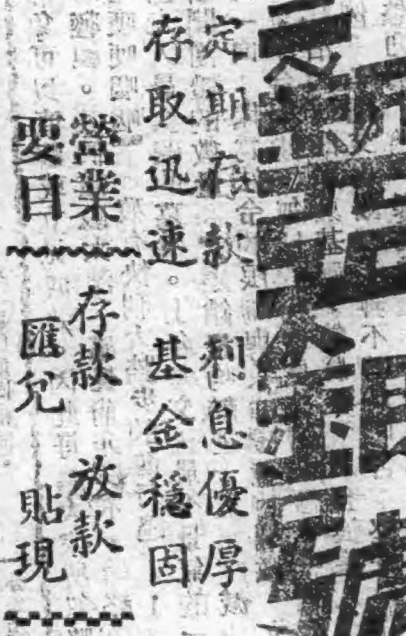 銀號
定期存款 利息優厚
存取迅速。基金穩固
營業
要目
存款 放款
匯兌 貼現